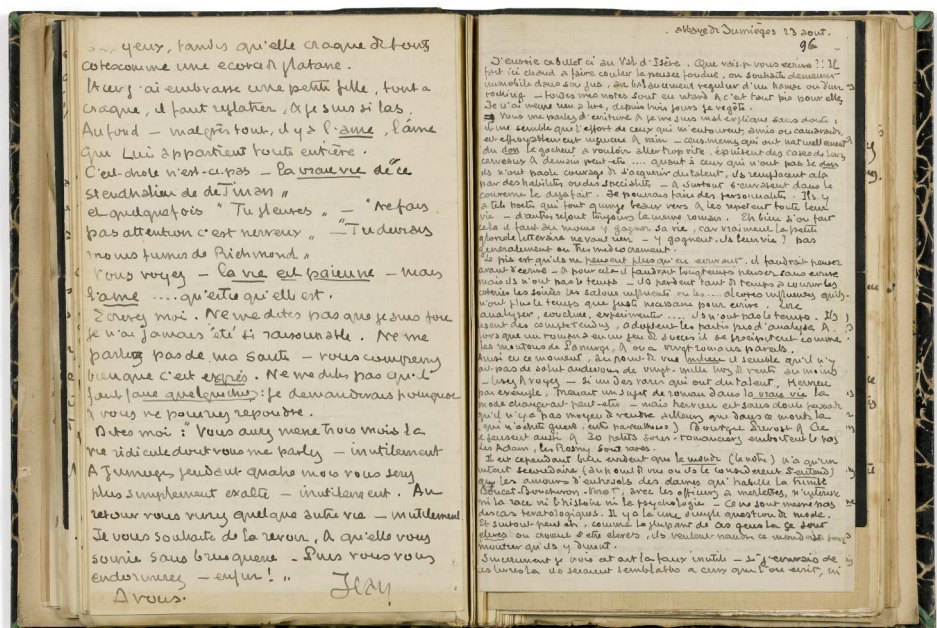 yeux, tandis qu'elle craque de tous
cotes comme une ecorce de platane.
j'ai embrassé une petite fille, tout a
craqué, il faut replatrer, & je suis si las.
Au fond – malgré tout, il y a l'ame, l'âme
que Lui appartient toute entière.
C'est drole n'est-ce pas – La vraie vie de ce
stendhalien de de Tinan "
et quelquefois " Tu pleures " – " Ne fais
pas attention c'est nerveux " – " Tu devrais
moins fumer de Richmond "
Vous voyez – la vie est païenne – mais
l'ame .... qu'est ce qu'elle est.
Ecrivez moi. Ne me dites pas que je suis fou
je n'ai jamais été si raisonnable. Ne me
parlez pas de ma santé – vous comprenez
bien que c'est exprès. Ne me dites pas qu'il
faut faire quelque chose : je demanderais pourquoi
& vous ne pourrez repondre.
Dites moi : " Vous avez mené trois mois la
vie ridicule dont vous me parlez – inutilement
A Jumièges pendant quatre mois vous serez
plus simplement exalté – inutilement. Au
retour vous vivrez quelque autre vie – inutilement
Je vous souhaite de la revoir, & qu'elle vous
sourie sans brusquerie – Puis vous vous
endormirez – enfin ! "
A vous.
Jean
abbaye de Jumièges 23 aout.
96
J'envoie ce billet ci au Val d'Isère. Que vais-je vous ecrire ?! Il
fait ici chaud a faire couler la pensee fondue, on souhaite demeurer
immobile dans son jus, au balancement regulier d'un hamac ou d'un
rocking – toutes mes notes sont en retard & c'est tant pis pour elles
Je n'ai meme rien a lire, depuis trois jours je vegète.
Vous me parlez d'ecriture & je me suis mal expliqué sans doute :
il me semble que l'effort de ceux qui m'entourent, amis ou camarades,
est effroyablement vain – ceux memes qui ont naturellement
du don le gachent a vouloir aller trop vite, epuisent des cases de leurs
cerveaux & demain peut-etre .... quant à ceux qui n'ont pas le don
ils n'ont pas le courage d'acquerir du talent, ils remplacent cela
par des habilités ou des specialités – & surtout s'ecrasent dans le
Ils y
a tels poetes qui font quinze beaux vers & les repetent toute leur
vie – d'autres refont toujours le meme roman. Eh bien si on fait
cela il faut au moins y gagner sa vie, car vraiment la petite
gloriole litteraire ne vaut rien – y gagnent-ils leur vie ? pas
generalement ou très mediocrement.
Le pis est qu'ils ne pensent plus qu'en ecrivant. il faudrait penser
avant d'ecrire – & pour cela il faudrait longtemps penser sans ecrire
mais ils n'ont pas le temps – ils perdent tant de temps a courir les
soirées les salons influents ou les ... alcoves influentes qu'ils
n'ont plus le temps que juste necessaire pour ecrire. Lire
analyser, conclure, experimenter .... ils n'ont pas le temps. Ils
usent des comptes rendus, adoptent les partis pris d'analyse &
lorsque un roman a eu un peu de succès il se precipitent comme
les moutons de Panurge, & on a vingt romans pareils.
Aussi en ce moment, au point de vue milieu il semble qu'il n'y
ait pas de salut audessous de vingt-mille livres de rente au moins
– lisez & voyez – Si un des rares qui ont du talent, Hervieu
par exemple, prenait un sujet de roman dans la vraie vie la
mode changerait peut-etre – mais hervieu est sans doute
qu'il n'y a pas moyen de vendre ailleurs que dans ce monde la
(qui n'achète guère, entre parenthèses) Bourget Prevost & Cie
le pensent aussi & 30 petits sous-romanciers emboitent le pas
les Adam, les Rosny sont rares.
Il est cependant bien evident que le monde (le notre) n'a qu'un
interet secondaire (au point de vue ou ils le considerent s'entend)
que les amours d'entresols des dames qu'habille la trinité
Doucet-Boucheron-Virot, avec les officiers a merlettes, n'interesse
ni la race ni l'histoire ni la psychologie – Ce ne sont meme pas
des cas teratologiques. Il y a la une simple question de mode.
Et surtout peut etre, comme la plupart de ces gens la se sont
elevés ou croient s'etre elevés, ils veulent
montrer qu'ils y dinent.
Sincerement je crois cet art la faux inutile – si j'ecrivais de
ces livres la ils seraient semblables a ceux que l'on ecrit, ni